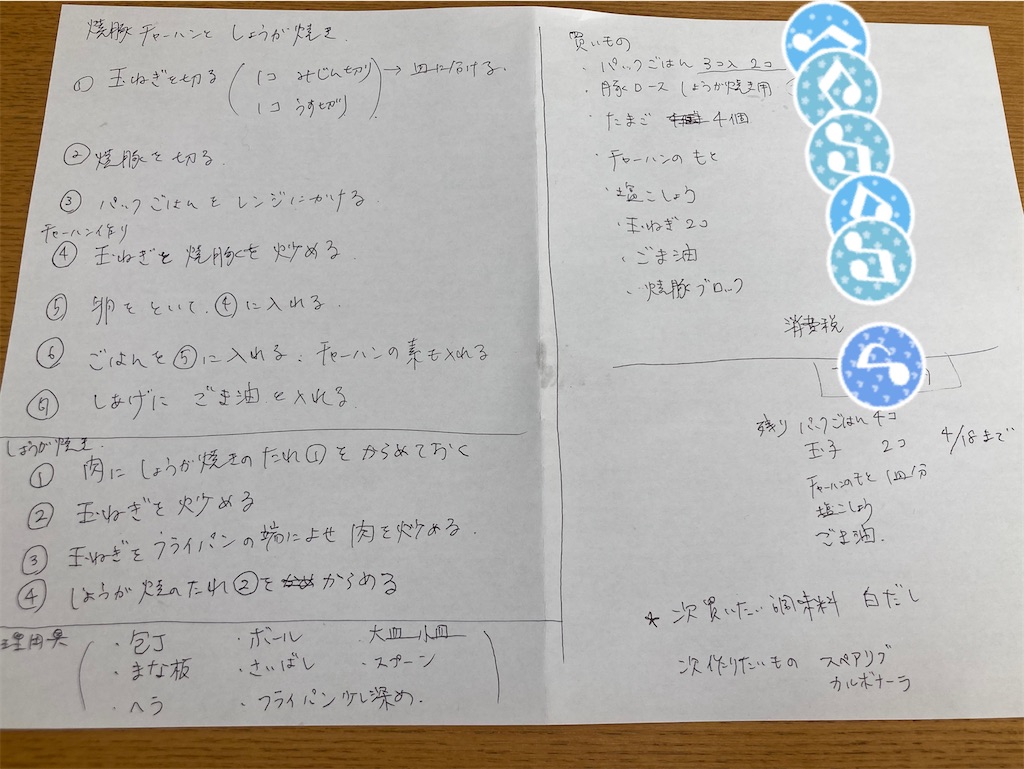 焼豚チャーハンと しょうが焼き
① 玉ねぎを切る ( 1コ みじん切り ) → 皿に分ける.
1コ うす切り
② 焼豚を切る.
③ パックごはんをレンジにかける.
チャーハン作り
④ 玉ねぎを焼豚を炒める.
⑤ 卵をといて、④に入れる.
⑥ ごはんを⑤に入れる、チャーハンの素も入れる
⑦ しあげに ごま油を入れる.
しょうが焼き.
① 肉にしょうが焼きのたれ①をからめておく
② 玉ねぎを炒める
③ 玉ねぎをフライパンの端によせ 肉を炒める.
④ しょうが焼のたれ②を からめる
理用具
・包丁 ・ボール ・大皿 小皿
・まな板 ・さいばし ・スプーン
・ヘラ ・フライパン少し深め.
買いもの
・パックごはん 3コ入 2コ
・豚ロース しょうが焼き用
・たまご 4個
・チャーハンのもと
・塩こしょう
・玉ねぎ 2コ
・ごま油
・焼豚ブロック
消費税
残り パックごはん 4コ
玉子 2コ 4/18まで
チャーハンのもと 1皿分
塩こしょう
ごま油.
* 次買いたい調味料 白だし
次作りたいもの スペアリブ
カルボナーラ